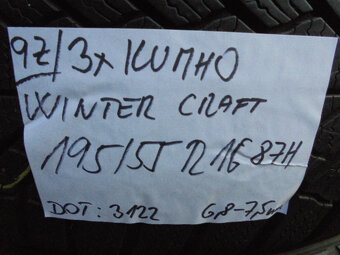 9Z/3x KUMHO
WINTER CRAFT
195/55 R 16 87H
DOT: 3122 6,8-7,5mm